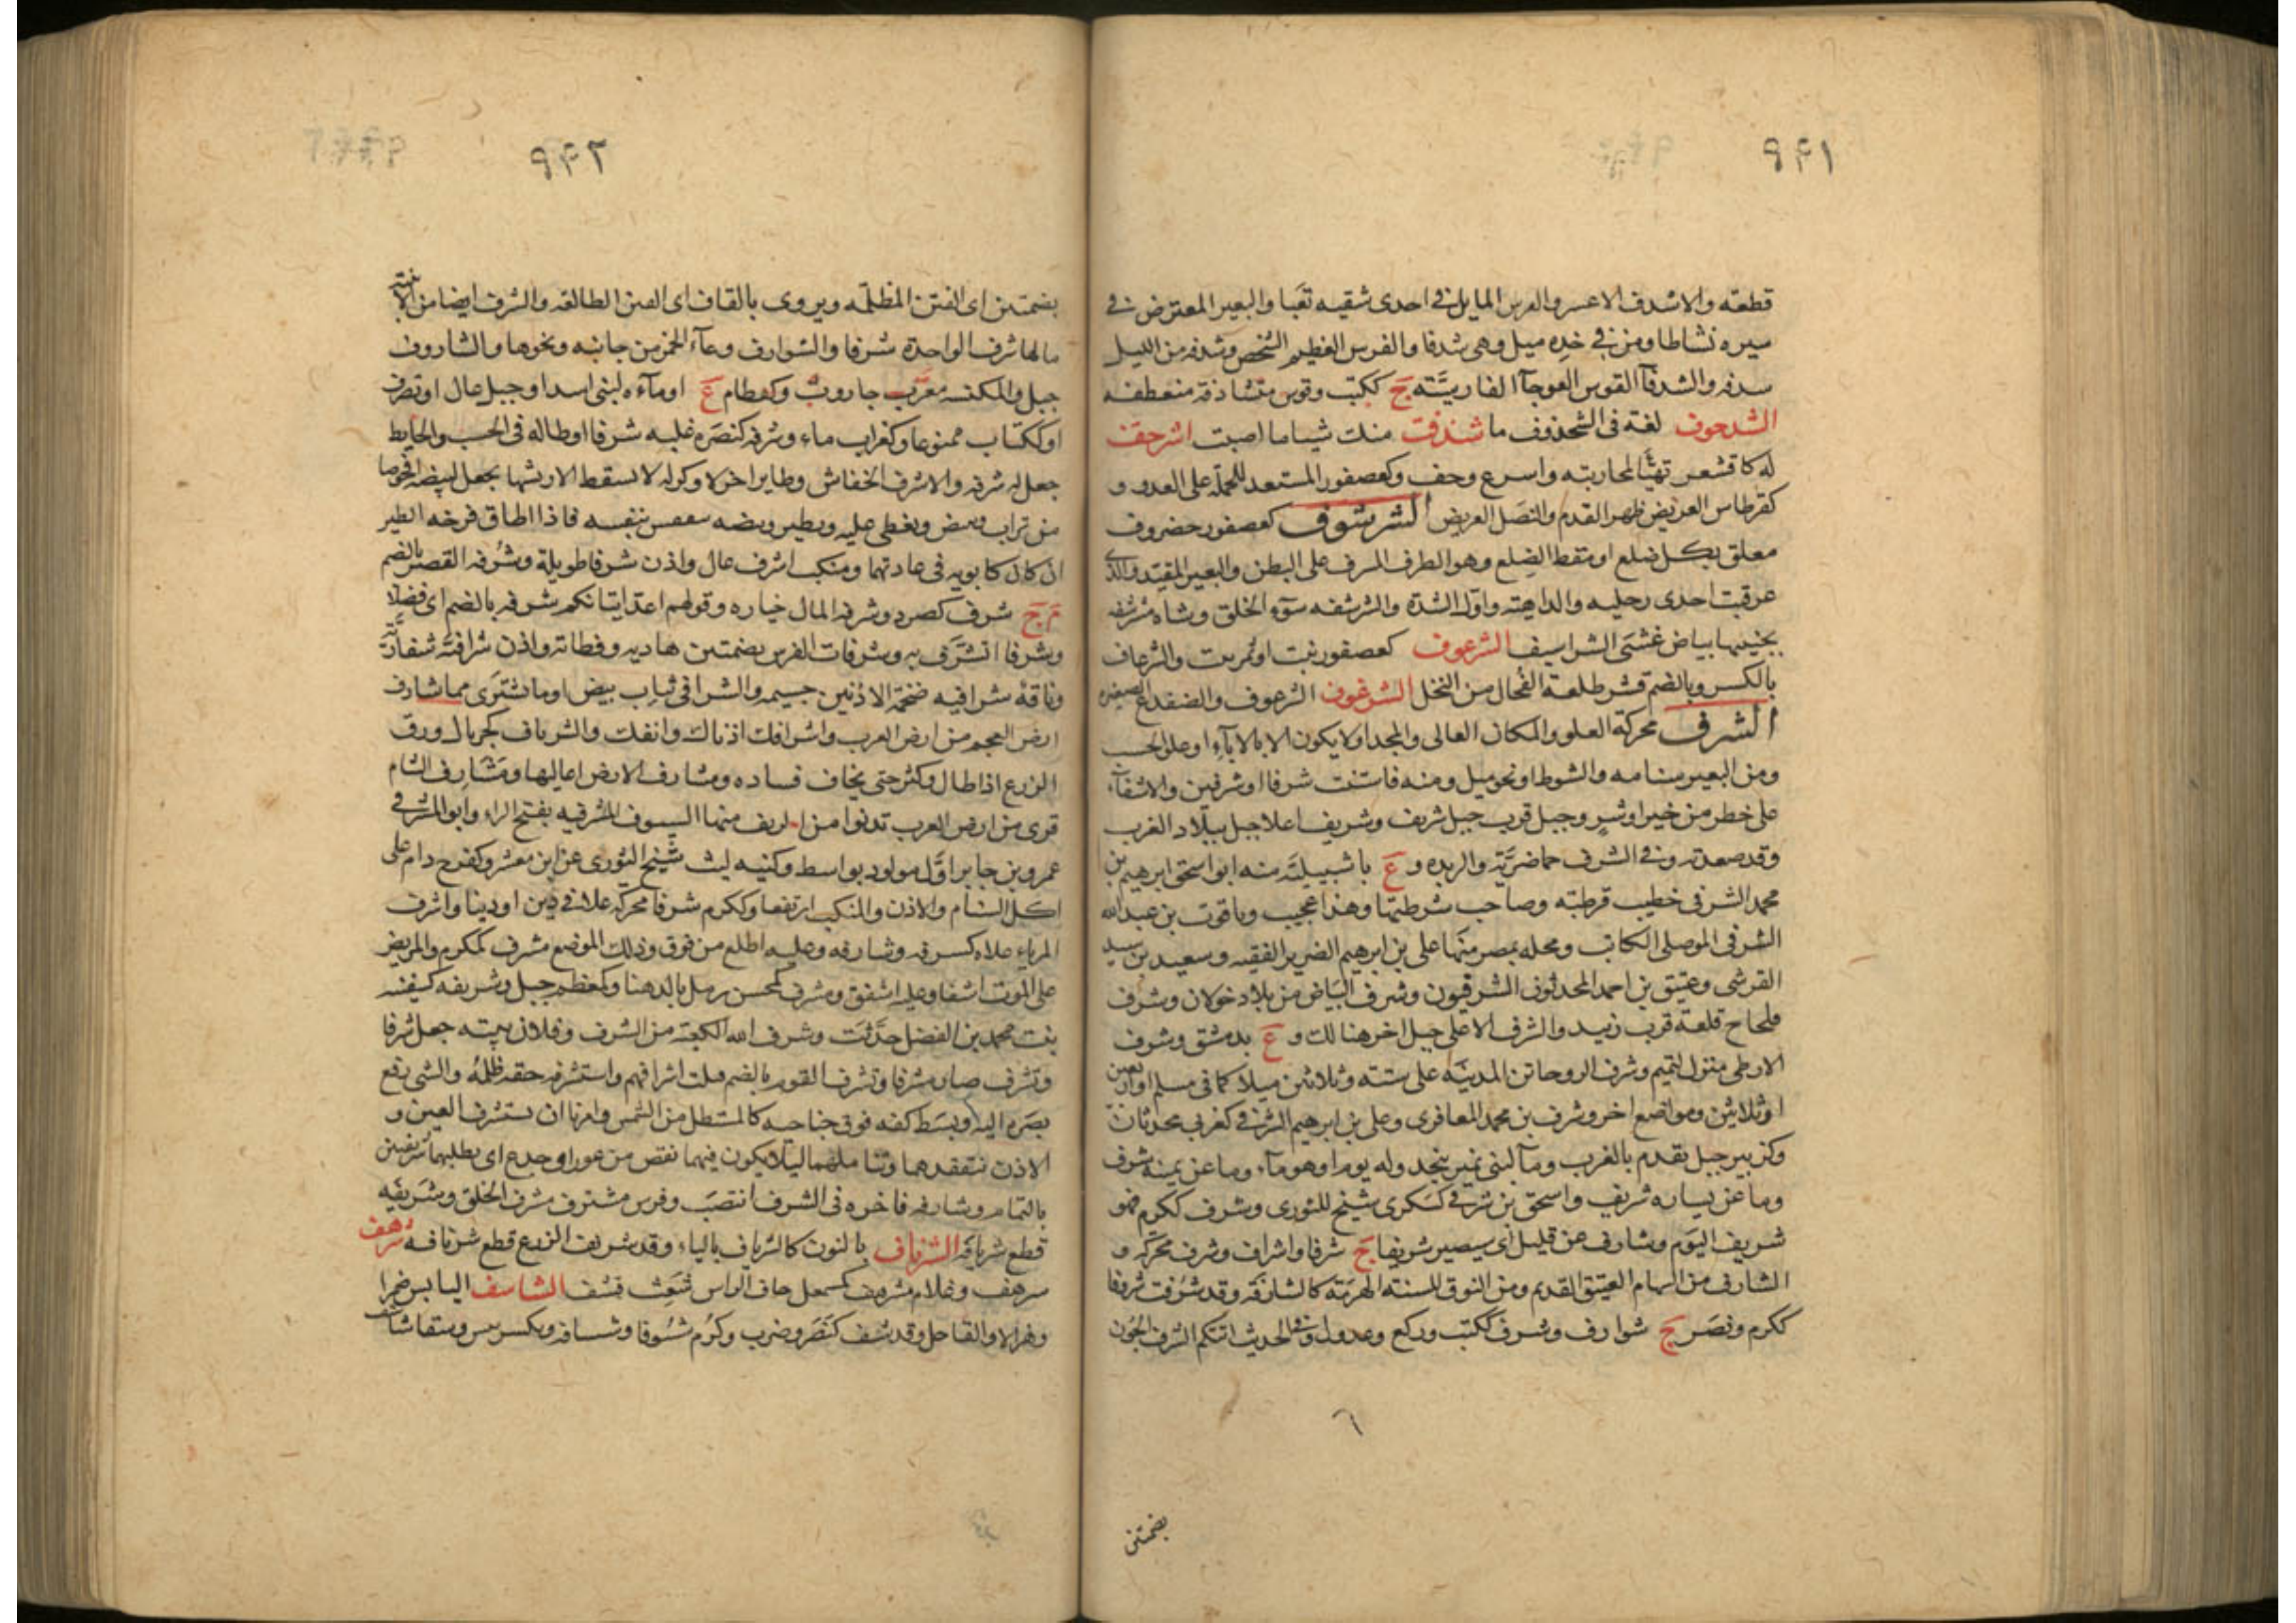 ٩٤١
قطعته والاشدف الاعسر والفرس المايل في احدى شقيه تعبا والبعير المعترض في
سيره نشاطا ومن في خده ميل وهي شدفا والفرس العظيم الشخص وشدفه من الليل
سدفه والشدفآ القوس العوجآ الفارسية ج ككتب وقوس متشادفة منعطفه
الشدحوف لغة في الشحذوف ما شندفت منك شيا ما اصبت اشرحفت
له كاقشعر تهيأ لمحاربته واسرع وخف وكعصفور المستعد للحملة على العدو و
كقرطاس العريض ظهر القدم والنصل العريض الشرشوف كعصفور غضروف
معلق بكل ضلع او مقط الضلع وهو الطرف المشرف على البطن والبعير المقيد والذي
عرقبت احدى رجليه والداهية واول الشدة والشرشفه سوء الخلق وشاه مشرشفه
بجنبيها بياض غشى الشراسيف الشرعوف كعصفور نبت او ثمر نبت والشرعاف
بالكسر وبالضم قشر طلعة الفحال من النخل الشرغوف الشرعوف والضفدع الصغيره
الشرف محركة العلو والمكان العالي والمجد او لا يكون الا بالابآء او علو الحسب
ومن البعير سنامه والشوط او نحو ميل ومنه فاستنت شرفا او شرفين والاشفآء
على خطر من خير او شر وجبل قرب جبل شريف وشريف اعلا جبل ببلاد العرب
وقد صعدته وفي الشرف حماضرية والربذه و ع باشبيلية منه ابو اسحق ابرهيم بن
محمد الشرفي خطيب قرطبة وصاحب شرطتها وهذا عجيب وياقوت بن عبد الله
الشرفي الموصلي الكاتب ومحله بمصر منها علي بن ابرهيم الضرير الفقيه وسعيد بن سيد
القرشي وعتيق بن احمد المحدثون الشرفيون وشرف البياض من بلاد خولان وشرف
قلحاح قلعة قرب زبيد والشرف الاعلى جبل اخر هنالك و ع بدمشق وشرف
الارطى منزل لتميم وشرف الروحا من المدينة على ستة وثلاثين ميلا كما في مسلم او اربعين
او ثلاثين ومواضع اخر وشرف بن محمد المعافري وعلي بن ابرهيم الشرفي كعربي محدثان
وكزبير جبل تقدم بالغرب ومآ لبني نمير بنجد وله يوم او هو مآء وما عن يمينه شرف
وما عن يساره شريف واسحق بن شرفي كسكرى شيخ للثوري وشرف ككرم فهو
شريف اليوم وشارف عن قليل اي سيصير شريفا ج شرفا واشراف وشرف محركة و
الشارف من السهام العتيق القديم ومن النوق المسنة الهرمة كالشارفة وقد شرفت شروفا
ككرم ونصر ج شوارف وشرف ككتب وركع وعدول وفي الحديث اتتكم الشرف الجون
٦
بضمتين
٩٤٢
بضمتين اي الفتن المظلمة ويروى بالقاف اي الفتن الطالعه والشرف ايضا من الابنية
مالها شرف الواحدة شرفا والشوارف وعآء الخمر من خابيه ونحوها والشاروف
جبل والمكنسه معرب جاروب وكقطام ع او مآءه لبني اسد او جبل عال او تصرف
او ككتاب ممنوعا وكغراب ماء وشرفه كنصره غلبه شرفا او طاله في الحسب والحايط
جعل له شرفه والاشرف الخفاش وطاير اخر لا وكر له لا يسقط الا ريثما يجعل لبيضه افحوصا
من تراب ويبيض ويغطي عليه ويطير وبيضه يتفقس بنفسه فاذا اطاق فرخه الطير
ان كان كابويه في عادتهما ومنكب اشرف عال واذن شرفا طويلة وشرفه القصر بالضم
م ج شرف كصرد وشرفه المال خياره وقولهم اعد اتيانكم شرفه بالضم اي فضلا
وشرفا اتشرف به وشرفات الفرس بضمتين هاديه وقطاته واذن شرافية شفارية
وناقة شرافيه ضخمة الاذنين جسيمه والشرافي ثياب بيض او ما تشترى مما شارف
ارض العجم من ارض العرب واشرافك اذناك وانفك والشرياف كجريال ورق
الزرع اذا طال وكثر حتى يخاف فساده ومشارف الارض اعاليها ومشارف الشام
قرى من ارض العرب تدنوا من الريف منها السيوف المشرفيه بفتح الراء وابو المشرفي
عمرو بن جابر اول مولود بواسط وكنيه ليث شيخ الثوري عن ابن معشر وكفرح دام على
اكل السنام والاذن والمنكب ارتفعا وككرم شرفا محركة علا في دين او دنيا واشرف
المرباء علاه كشرفه وشارفه وعليه اطلع من فوق وذلك الموضع مشرف كمكرم والمريض
على الموت اشفا وعليه اشفق ومشرف كمحسن رمل بالدهنا وكمعظم جبل وشريفه كسفينه
بنت محمد بن الفضل حدثت وشرف الله الكعبة من الشرف وفلان بيته جعل له شرفا
وتشرف صار مشرفا وتشرف القوم بالضم قتلت اشرافهم واستشرفه حقه ظلمه والشي رفع
بصره اليه وبسط كفه فوق حاجبه كالمستظل من الشمس وامرنا ان نستشرف العين و
الاذن نتفقدهما ونتاملهما ليلا يكون فيهما نقص من عور او جدع اي نطلبهما شريفين
بالتمام وشارفه فاخره في الشرف انتصب وفرس مشترف مشرف الخلق وشريفه
قطع شريافه الشرناف بالنون كالشرياف بالياء وقد شرنف الزرع قطع شرنافه شرهف
سرهف وغلام مشرهف كمسمعل حاف الراس شعث قشف الشاسف اليابس ضمرا
وهزالا والقاحل وقد شسف كنصر وضرب وكرم شسوفا وشسافة ويكسر وسقا شاسف